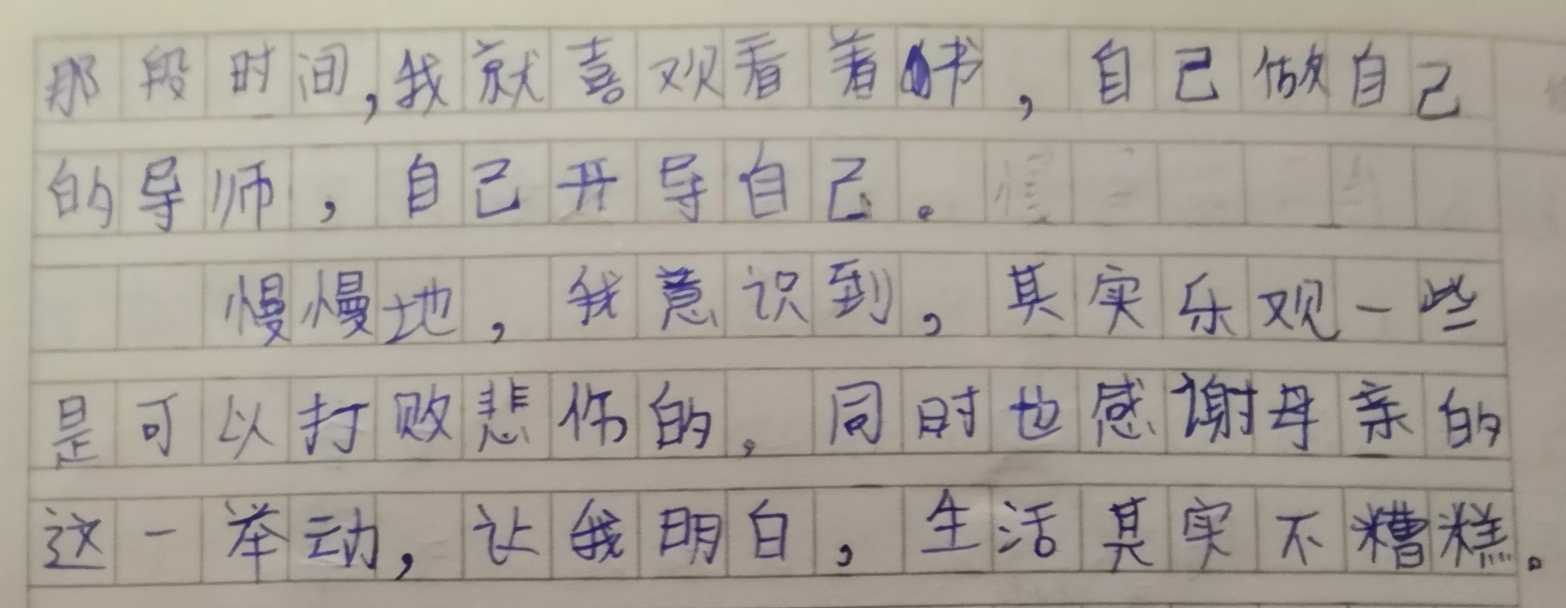 那段时间,我就喜观看着书，自己做自己
的导师，自己开导自己。
慢慢地，我意识到，其实乐观一些
是可以打败悲伤的。同时也感谢母亲的
这一举动，让我明白，生活其实不糟糕。